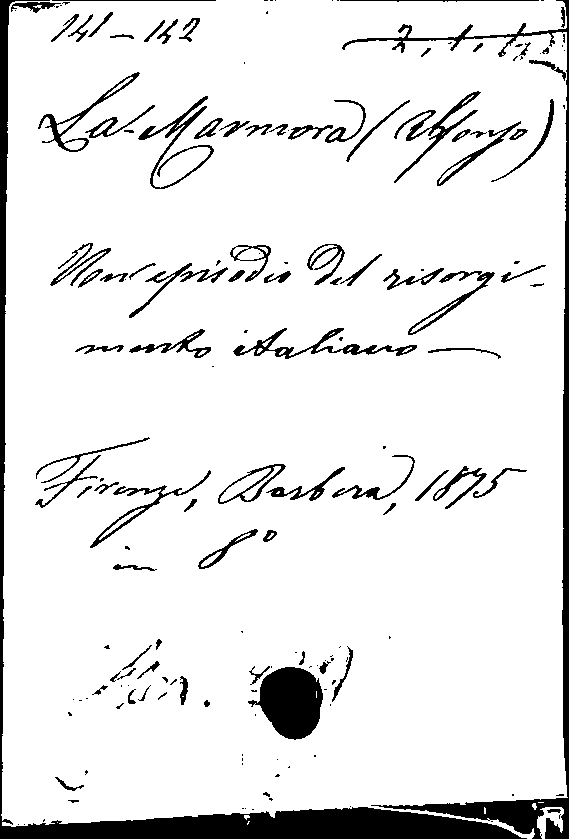 141-142
La-Marmora (Alfonso)
Un episodio del risorgi-
mento italiano —
Firenze, Barbera, 1875
in 8°